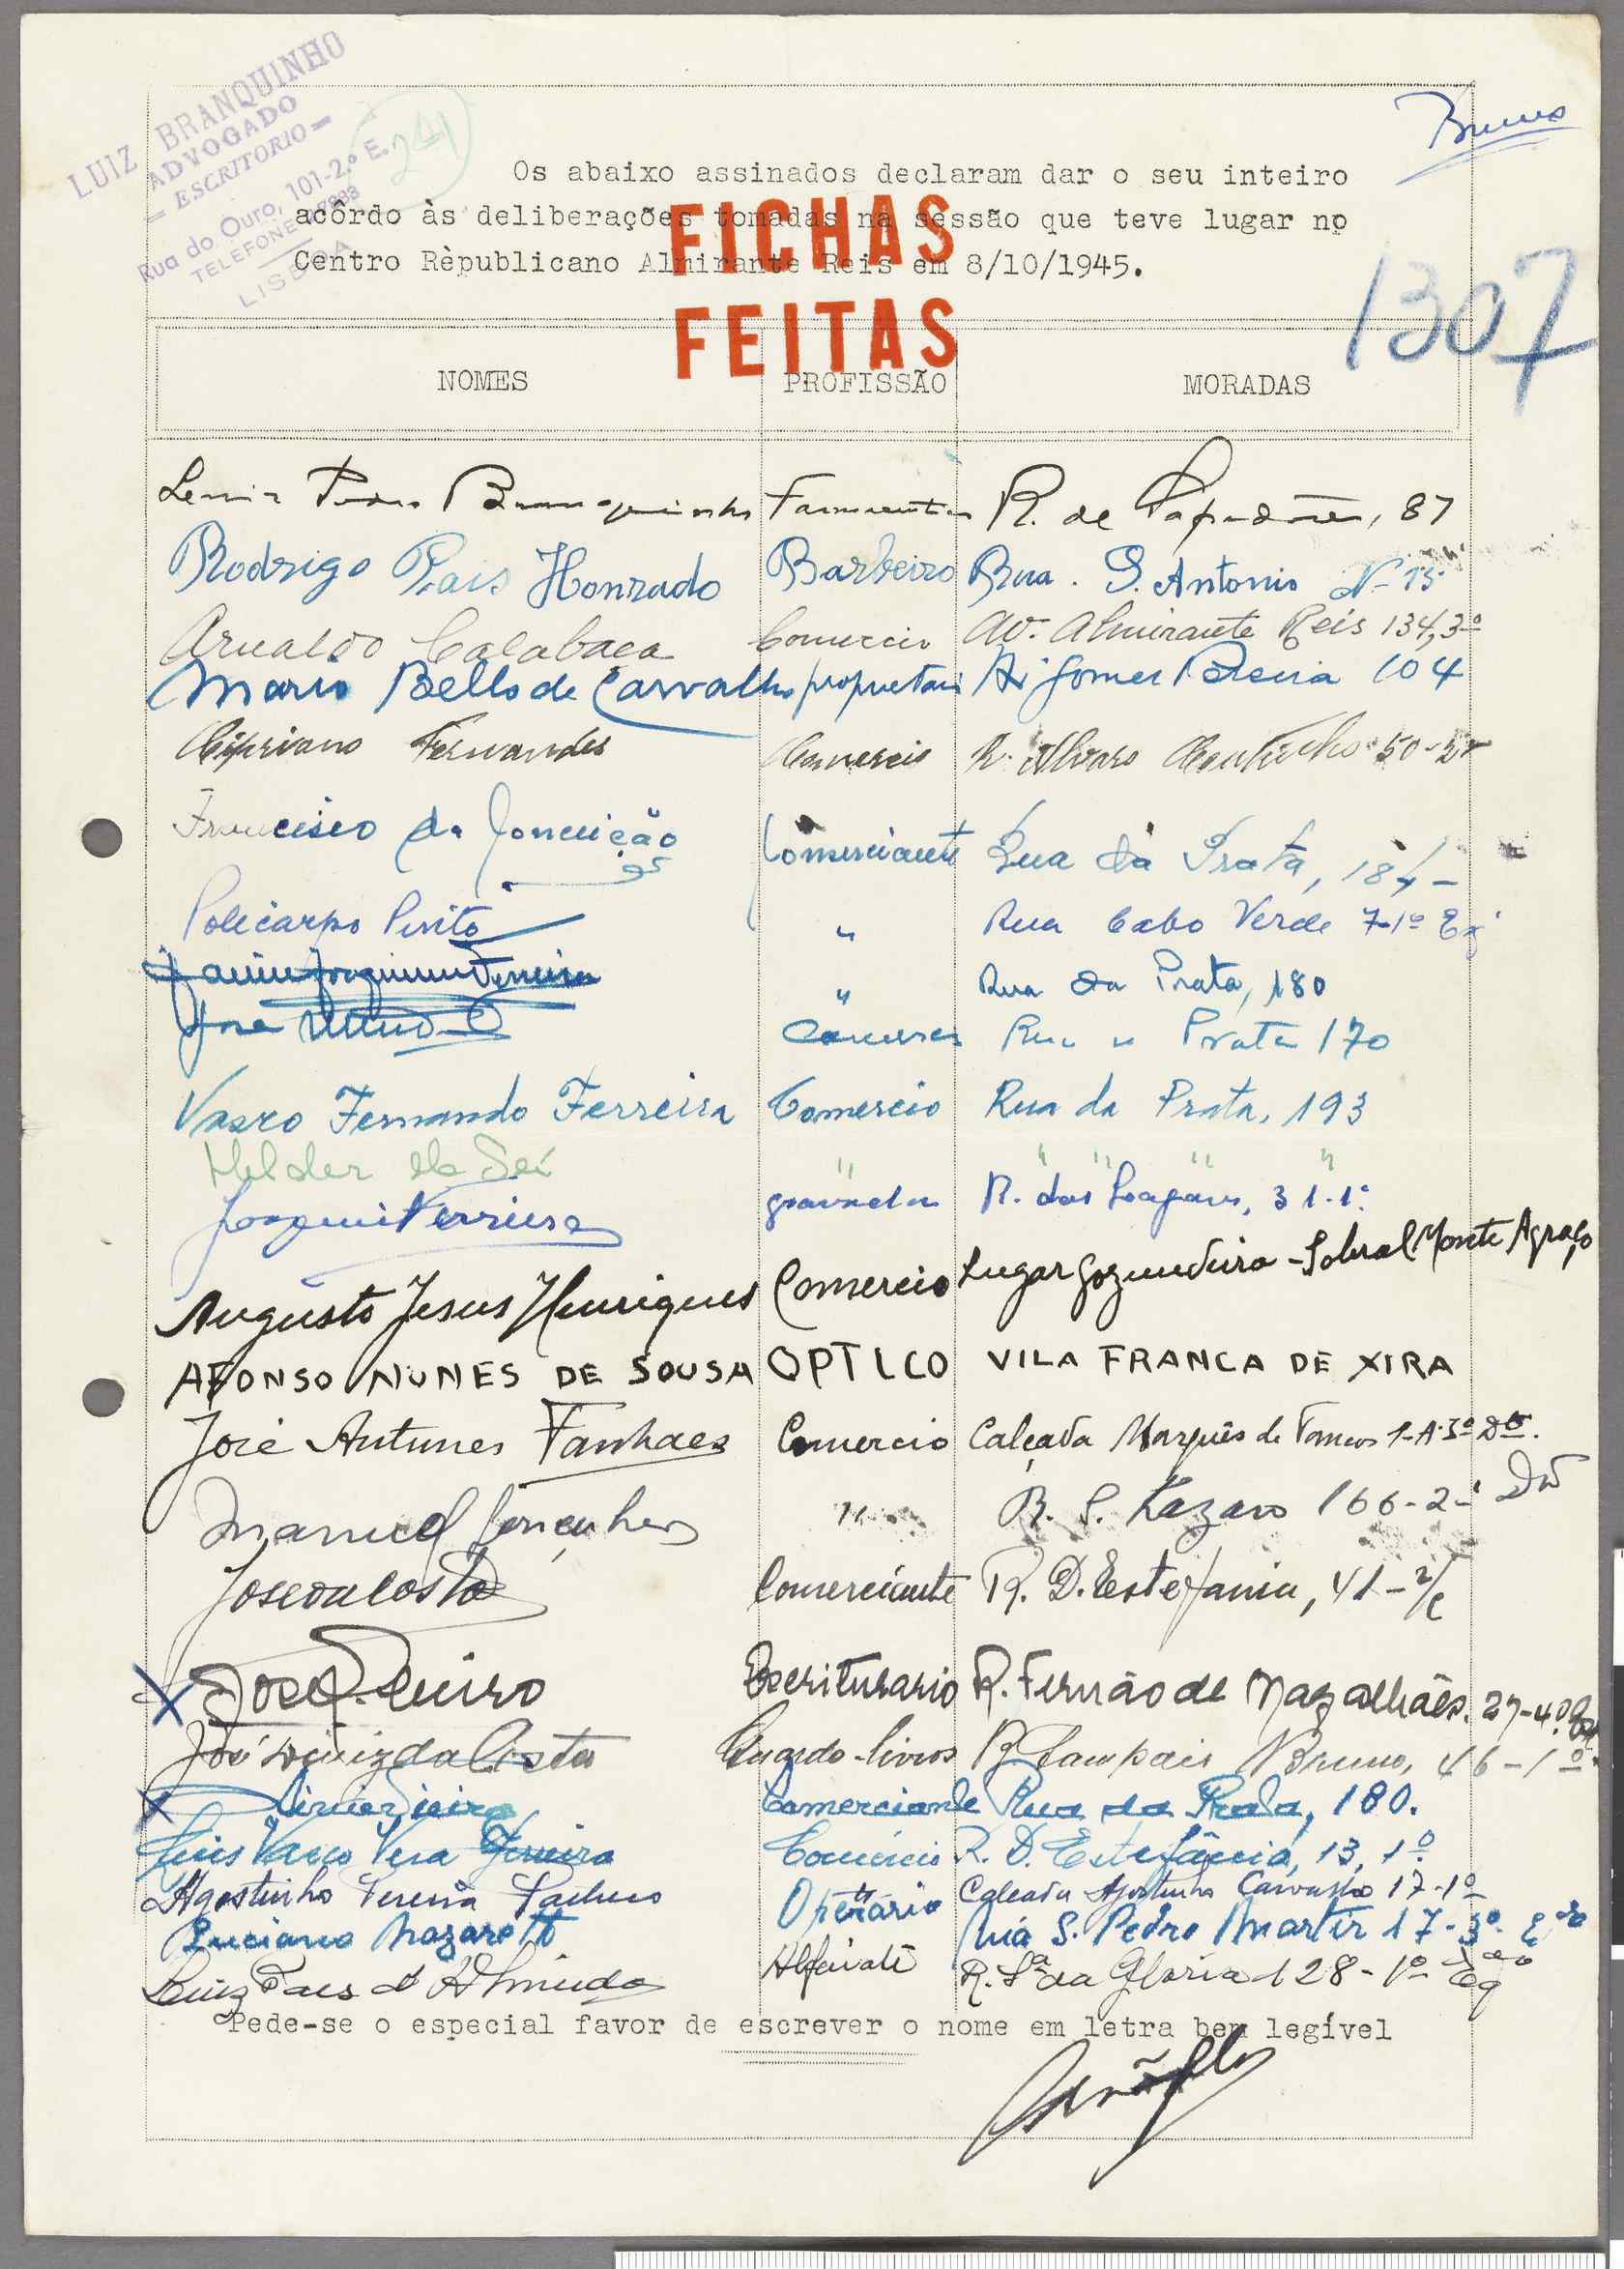 LUIZ BRANQUINHO
ADVOGADO
= ESCRITORIO =
Rua do Ouro, 101-2.º E.
TELEFONE
LISBOA
241
Bruno
Os abaixo assinados declaram dar o seu inteiro
acôrdo às deliberações tomadas na sessão que teve lugar no
Centro Rèpublicano Almirante Reis em 8/10/1945.
FICHAS
FEITAS
1307
NOMES PROFISSÃO MORADAS
Branquinho R. de 87
Rodrigo Pais Honrado Barbeiro Rua . S. Antonio Nº 15
Arnaldo Calabaça Comercio Av. Almirante Reis 134,3º
Mario Bello de Carvalho proprietari Gomes Pereira 104
Cipriano Fernandes Comercio R. Alvaro Coutinho 50-
Francisco da Conceição Comerciante Rua da Prata, 184-
Policarpo Pinto " Rua Cabo Verde 7-1º Eq
Joaquim Ferreira " Rua da Prata, 180
José Rua " Prata 170
Vasco Fernando Ferreira Comercio Rua da Prata, 193
Helder de " " " " "
Joaquim Ferreira gravador R. dos 31-1º
Augusto Jesus Henriques Comercio Lugar Gozundeira - Sobral Monte Agraço
AFONSO NUNES DE SOUSA OPTICO VILA FRANCA DE XIRA
José Antunes Fanhaes Comercio Calçada Marquês de Tancos 1-A-3º Dtº.
Manuel " R. S. Lazaro 166-2-
José da Costa Comerciante R. D. Estefania, 41-r/c
José Escriturario R. Fernão de Magalhães, 27-4º
José da Costa Guarda-livros R. Sampaio Bruno, 46-1º
Comerciante Rua da Prata, 180.
Luis Vasco Ferreira Comércio R. D. Estefânia, 13, 1º
Agostinho Pereira Operário Calçada Agostinho Carvalho 17-1º
Luciano Nazareth Rua S. Pedro Martir 17-3º
Luiz Paes d'Almeida Alfaiate R. Sª da Gloria 128-1º Eq
Pede-se o especial favor de escrever o nome em letra bem legível